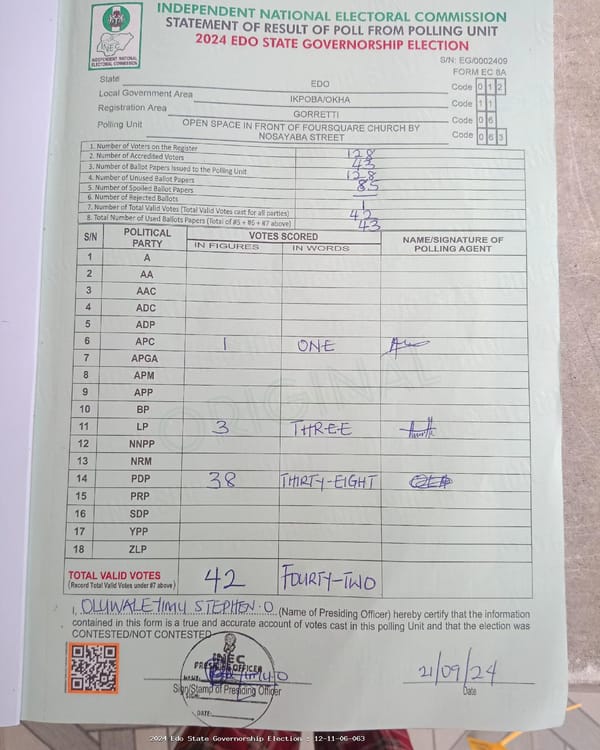 INDEPENDENT NATIONAL ELECTORAL COMMISSION
STATEMENT OF RESULT OF POLL FROM POLLING UNIT
2024 EDO STATE GOVERNORSHIP ELECTION
INEC
INDEPENDENT NATIONAL ELECTORAL COMMISSION
S/N: EG/0002409
FORM EC 8A
State EDO Code 0 1 2
Local Government Area IKPOBA/OKHA Code 1 1
Registration Area GORRETTI Code 0 6
Polling Unit OPEN SPACE IN FRONT OF FOURSQUARE CHURCH BY NOSAYABA STREET Code 0 6 3
1. Number of Voters on the Register 128
2. Number of Accredited Voters 43
3. Number of Ballot Papers Issued to the Polling Unit 128
4. Number of Unused Ballot Papers 85
5. Number of Spoiled Ballot Papers —
6. Number of Rejected Ballots 1
7. Number of Total Valid Votes (Total Valid Votes cast for all parties) 42
8. Total Number of Used Ballots Papers (Total of #5 + #6 + #7 above) 43
S/N POLITICAL PARTY VOTES SCORED NAME/SIGNATURE OF POLLING AGENT
IN FIGURES IN WORDS
1 A
2 AA
3 AAC
4 ADC
5 ADP
6 APC 1 ONE
7 APGA
8 APM
9 APP
10 BP
11 LP 3 THREE
12 NNPP
13 NRM
14 PDP 38 THIRTY-EIGHT
15 PRP
16 SDP
17 YPP
18 ZLP
ORIGINAL
TOTAL VALID VOTES 42 FOURTY-TWO
(Record Total Valid Votes under #7 above)
I, OLUWALETIMU STEPHEN.O (Name of Presiding Officer) hereby certify that the information
contained in this form is a true and accurate account of votes cast in this polling Unit and that the election was
CONTESTED/NOT CONTESTED
INEC
PRESIDING OFFICER
NAME:
SIGN:
DATE:
Sign/Stamp of Presiding Officer
21/09/24
Date
2024 Edo State Governorship Election : 12-11-06-063